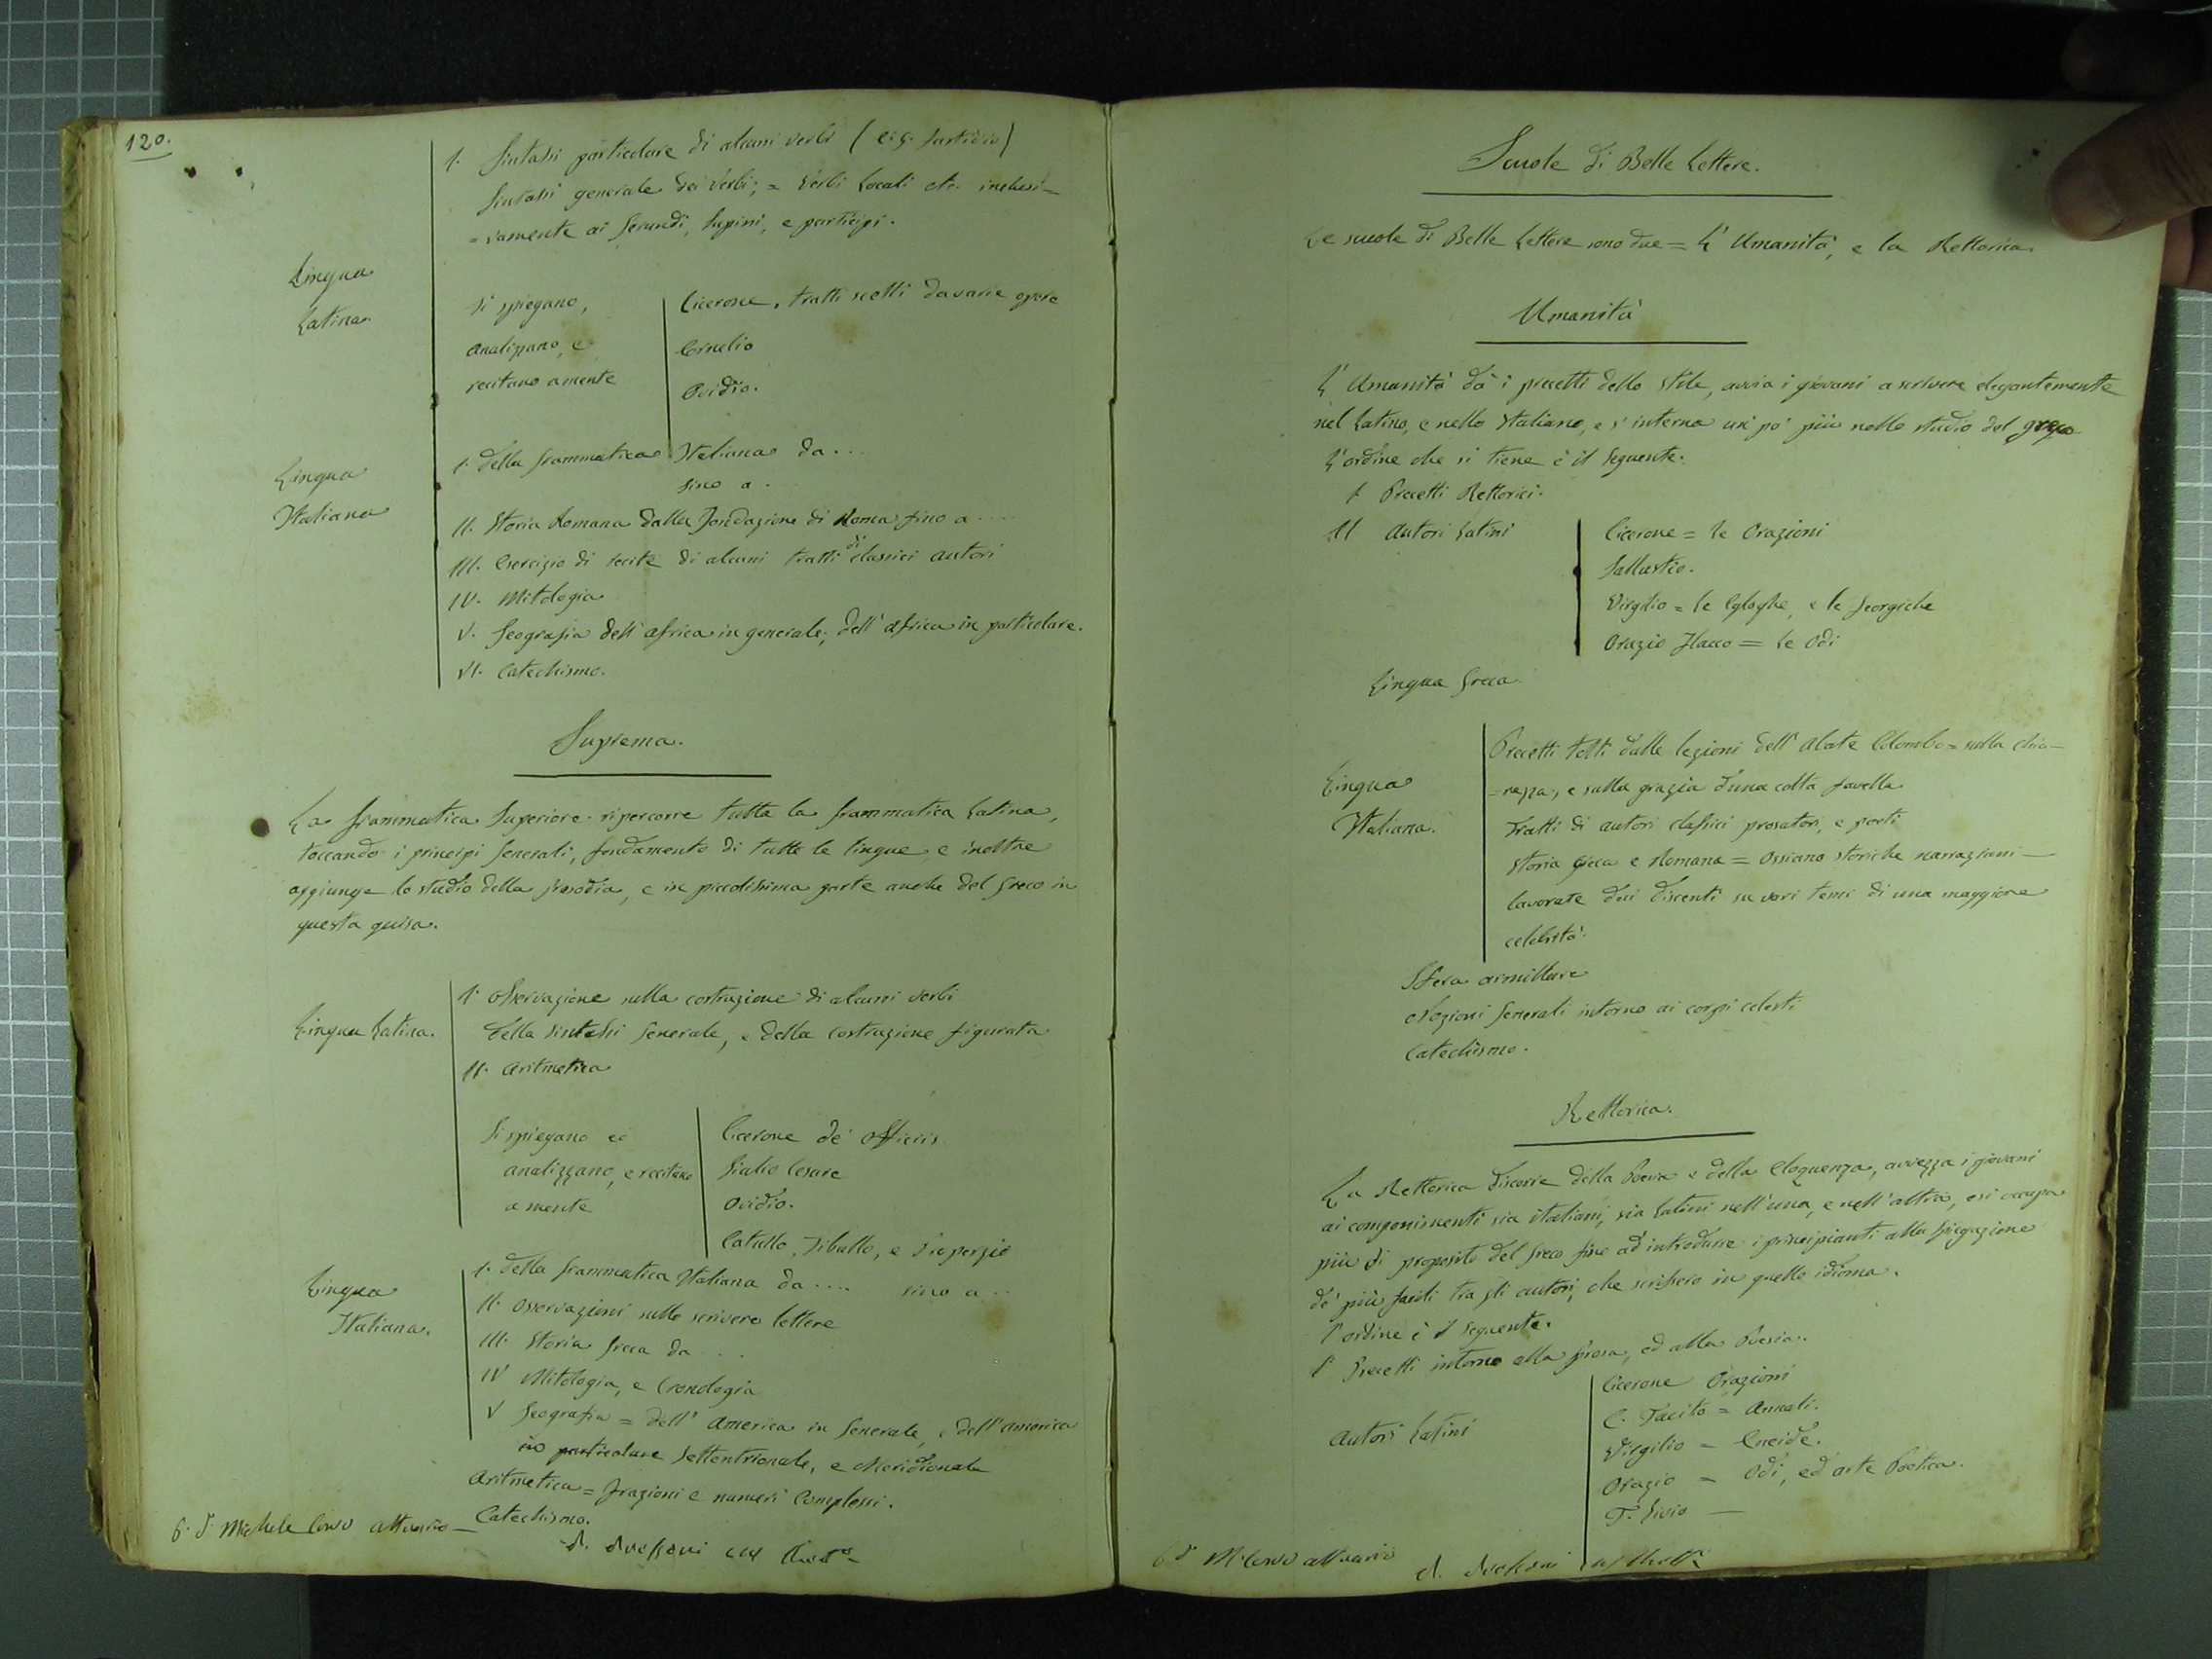 120.
I. Sintassi particolare di alcuni verbi (e: g:
Sintassi generale dei Verbi; = Verbi Locali etc. inclusi=
=vamente ai Gerundi, Supini, e participi.
Lingua
Latina
Si spiegano,
analizzano, e
recitano a mente
Cicerone, tratti scelti da varie opere
Cornelio
Ovidio.
Lingua
Italiana
I. Della Grammatica Italiana da ...
sino a .
II. Storia Romana dalla Fondazione di Roma fino a ....
III. Esercizio di recite di alcuni tratti di classici autori
IV. Mitologia
V. Geografia dell' Africa in generale; dell' Africa in particolare.
VI. Catechismo.
Suprema.
La Grammatica Superiore ripercorre tutta la Grammatica Latina,
toccando i principj Generali, fondamento di tutte le lingue e inoltre
aggiunge lo studio della prosodia, e in piccolissima parte anche del Greco in
questa guisa.
Lingua Latina.
I. Osservazione sulla costruzione di alcuni verbi
Della Sintassi Generale, e della costruzione figurata
II. Aritmetica
Si spiegano ed
analizzano, e recitano
a mente
Cicerone de' Officiis
Giulio Cesare
Ovidio.
Catullo, Tibullo, e Properzio
Lingua
Italiana.
I. Della Grammatica Italiana da .... sino a ..
II. Osservazioni sullo scrivere lettere
III. Storia Greca da ...
IV Mitologia, e Cronologia
V Geografia = dell' America in Generale, e dell' America
in particolare Settentrionale, e Meridionale
Aritmetica = frazioni e numeri Complessi.
Catechismo.
Michele Corvo attuario
Scuole di Belle Lettere.
Le scuole di Belle Lettere sono due = L' Umanità, e la Rettorica.
Umanità
L' Umanità dà i precetti dello stile, avvia i giovani a scrivere elegantemente
nel Latino, e nello Italiano, e s' interna un pò più nello studio del greco.
L' ordine che si tiene è il Seguente.
I Precetti Rettorici.
II Autori Latini
Cicerone = le Orazioni
Sallustio.
Virgilio = le Egloghe, e le Georgiche
Orazio Flacco = le Odi
Lingua Greca.
Lingua
Italiana.
Precetti tolti dalle lezioni dell' Abate Colombo = sulla chia=
=rezza, e sulla grazia d'una colta favella.
Tratti di autori classici prosatori, e poeti
Storia Greca e Romana = Ossiano storiche narrazioni —
lavorate dai discenti su vari temi di una maggiore
celebrità.
Sfera armillare
Nozioni Generali intorno ai corpi celesti
Catechismo.
Rettorica.
La Rettorica discorre della Poesia e della Eloquenza, avvezza i giovani
ai componimenti sia italiani, sia Latini nell'una, e nell' altra, e si occupa
più di proposito del Greco fino ad introdurre i principianti alla spiegazione
de' più facili tra gli autori, che scrissero in quello idioma.
L' ordine è il Seguente.
I. Precetti intorno alla Prosa, ed alla Poesia.
Autori Latini
Cicerone Orazioni
C. Tacito = Annali.
Virgilio = Eneide.
Orazio = Odi, ed arte Poetica.
T. Livio —
M. Corvo attuario